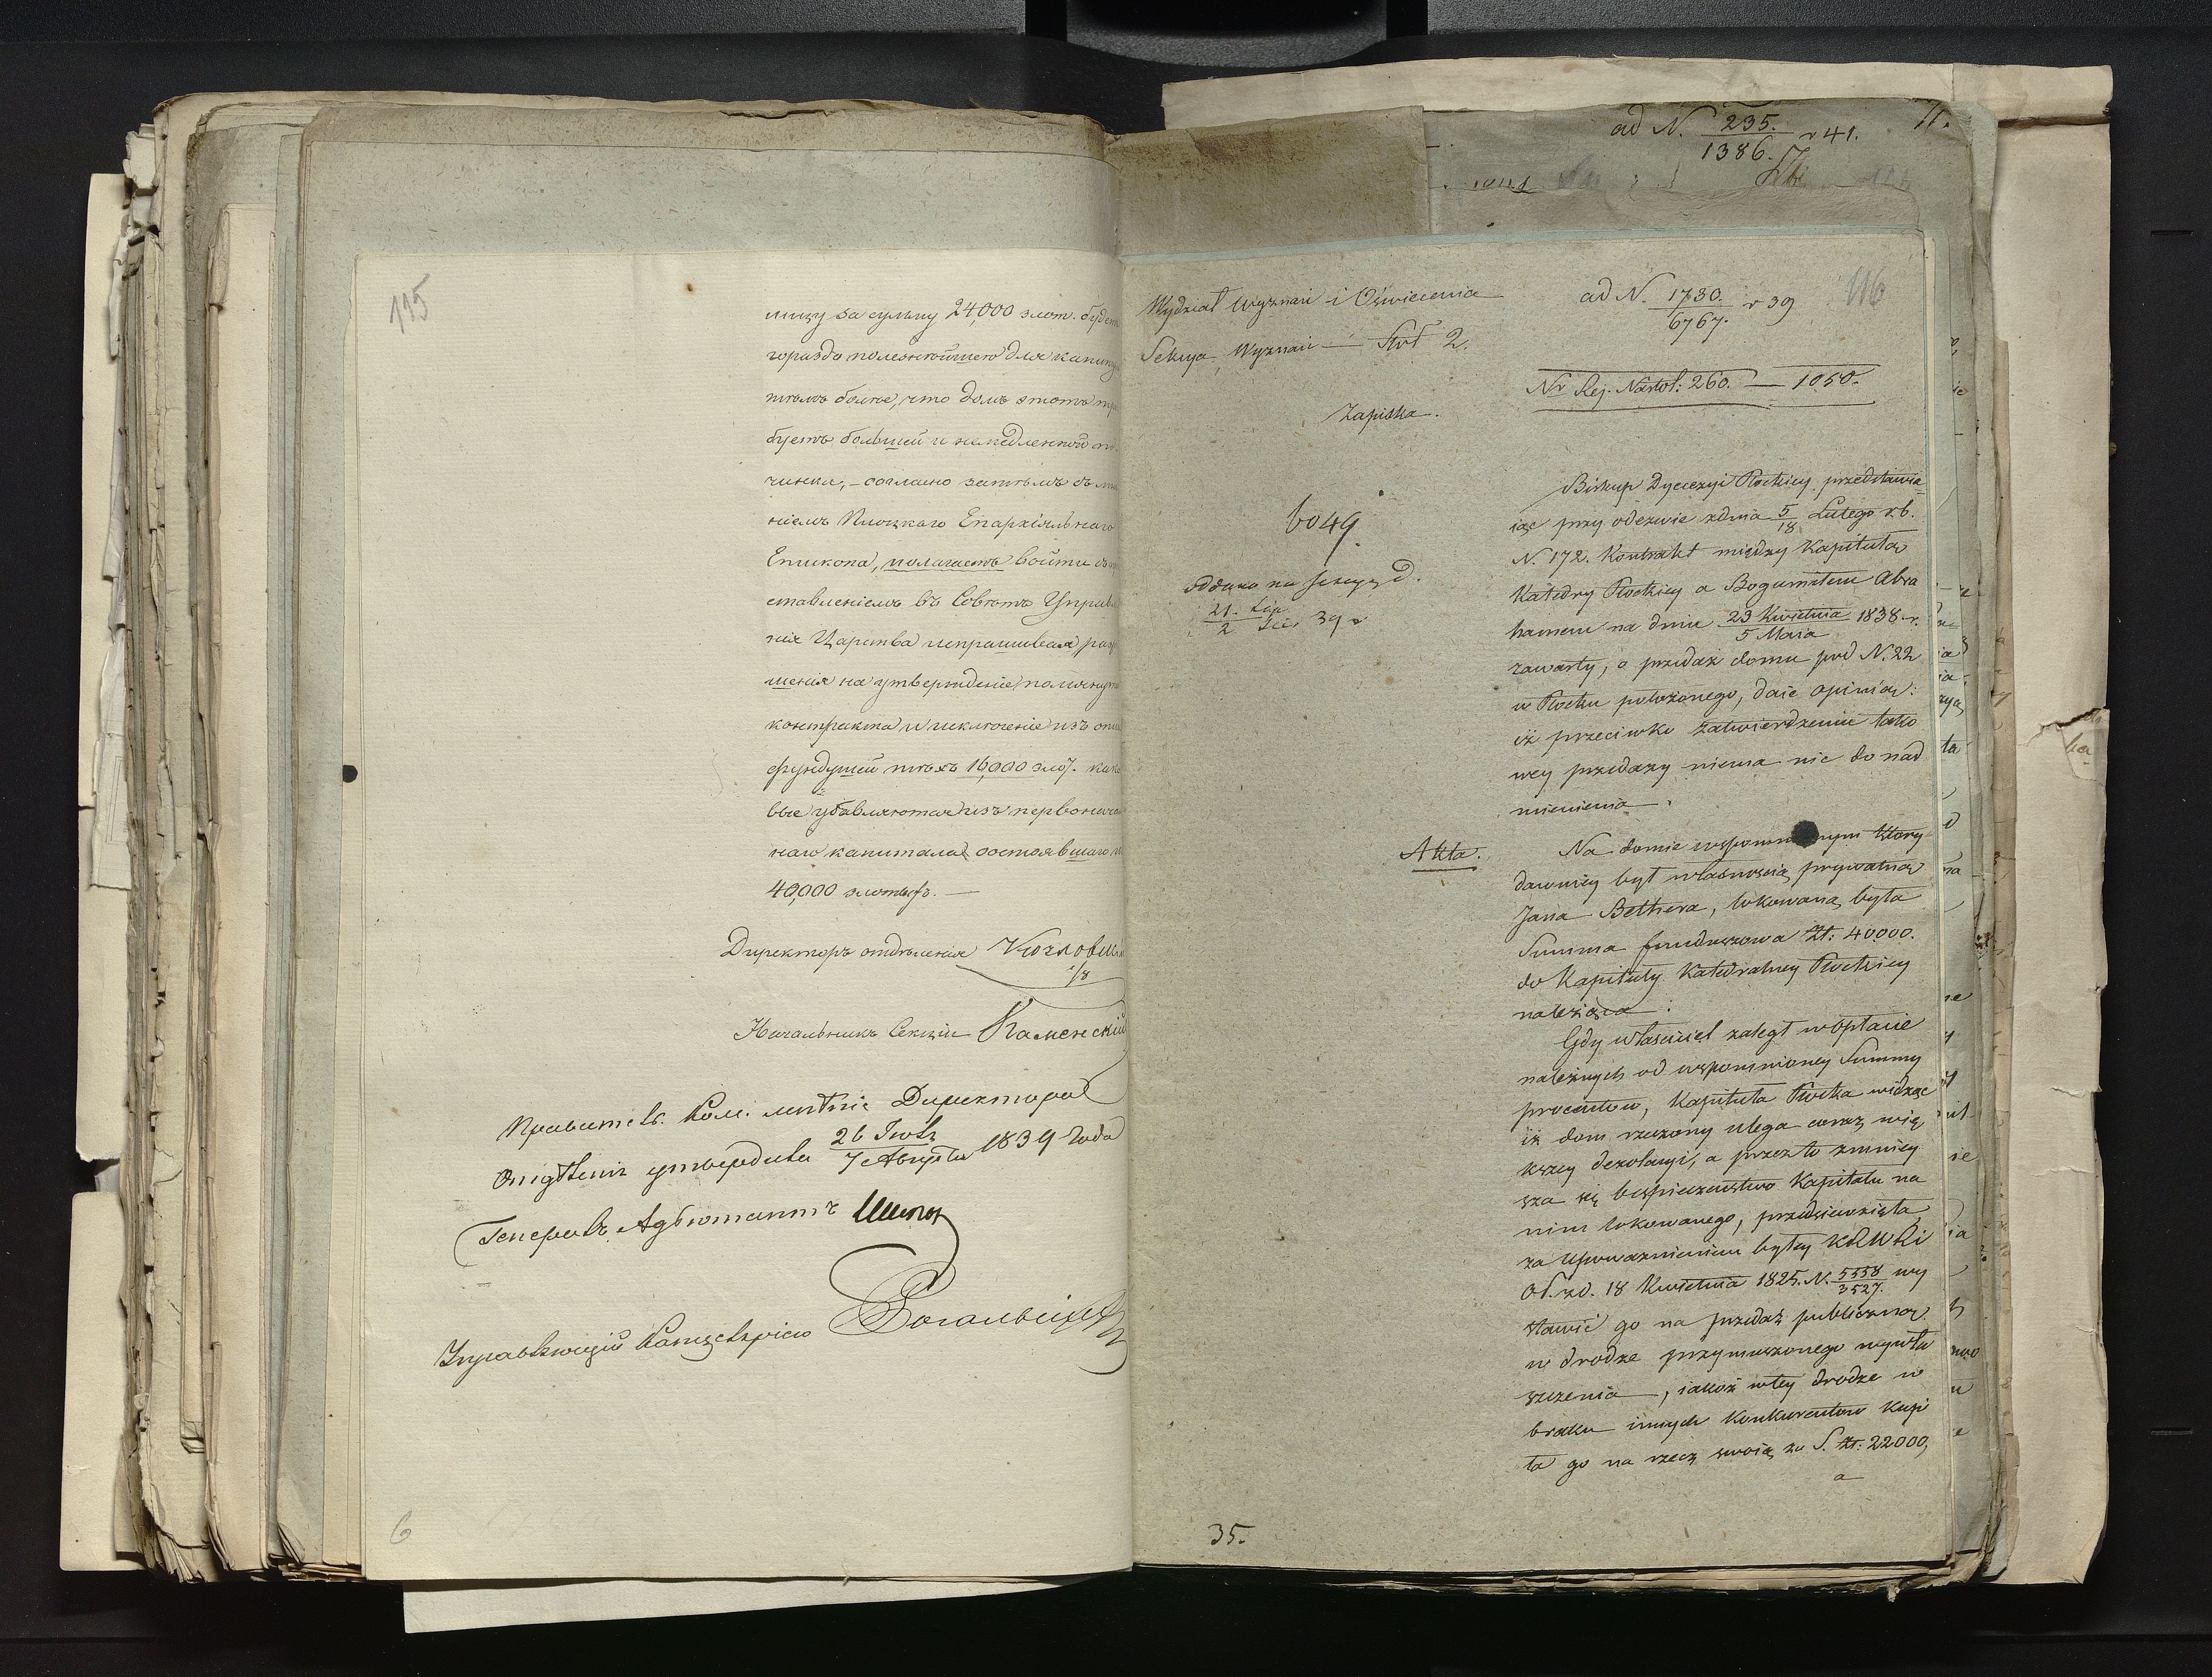 115
лицу за сумму 24,000 злот. будетъ
гораздо полезнѣйшею для капитула
тѣмъ болѣе, что домъ этотъ тре
буетъ большей и немедленной по
чинки, – согласно затѣмъ съ мнѣ
ніемъ Плоцкаго Епархіальнаго
Епископа, полагаетъ войти съ пред
ставленіемъ въ Совѣтъ Управле
нія Царства испрашивая разрѣ
шенія на утвержденіе помянутаго
контракта и исключеніе изъ описи
фундушей тѣхъ 16,000 злот. како
вые убавляются изъ первоначаль
наго капитала состоявшаго изъ
40,000 злотыхъ. —
Директоръ отдѣленія Козловскій
1/8
Начальникъ Секціи Каменскій
Правительств. Ком. мнѣніе Директора
Отдѣленія утвердила 26 Іюля / 7 Августа 1839 года
Генералъ Адъютантъ Шиповъ
Управляющій Канцеляріею
6
ad N. 235. / 1386. r 41.
71.
Wydział Wyznań i Oświecenia
Sekcya Wyznań — Stół 2.
ad N. 1730. / 6767. r 39
116
Nr Rej. Nastol: 260. — 1050.
Zapiska.
6049.
oddano na sekcyą d.
21. Lip / 2 Sier 39 r
Biskup Dyecezyi Płockiey przedstawia
iąc przy odezwie zdnia 5/18 Lutego r.b.
N. 172. Kontrakt między Kapitułą
Katedry Płockiey a Bogumiłem Abra
hamem na dniu 23 Kwietnia / 5 Maia 1838. r.
zawarty, o przedaż domu pod N. 22
w Płocku położonego, daie opinią:
iż przeciwko zatwierdzeniu tako
wey przedaży niema nic do nad
mienienia.
Akta.
Na domie wspomnionym który
dawniey był własnością prywatną
Jana Bethera, lokowaną była
Summa funduszowa Zł: 40000.
do Kapituły Katedralney Płockiey
należąca.
Gdy właściciel zaległ w opłacie
należnych od wspomnioney Summy
procentów, Kapituła Płocka widząc
iż dom rzeczony ulega coraz wię
kszey dezolacyi, a przezto zmniey
sza się bezpieczeństwo Kapitału na
nim lokowanego, przedsięwzięła
za upoważnieniem byłey KRWRi
Oś. z d. 18 Kwietnia 1825. N. 5558 / 3527. wy
stawić go na przedaż publiczną
w drodze przymuszonego wywła
szczenia, iakoż wtey drodze w
braku innych Konkurentów kupi
ła go na rzecz swoią za S. zł. 22000,
a
35.